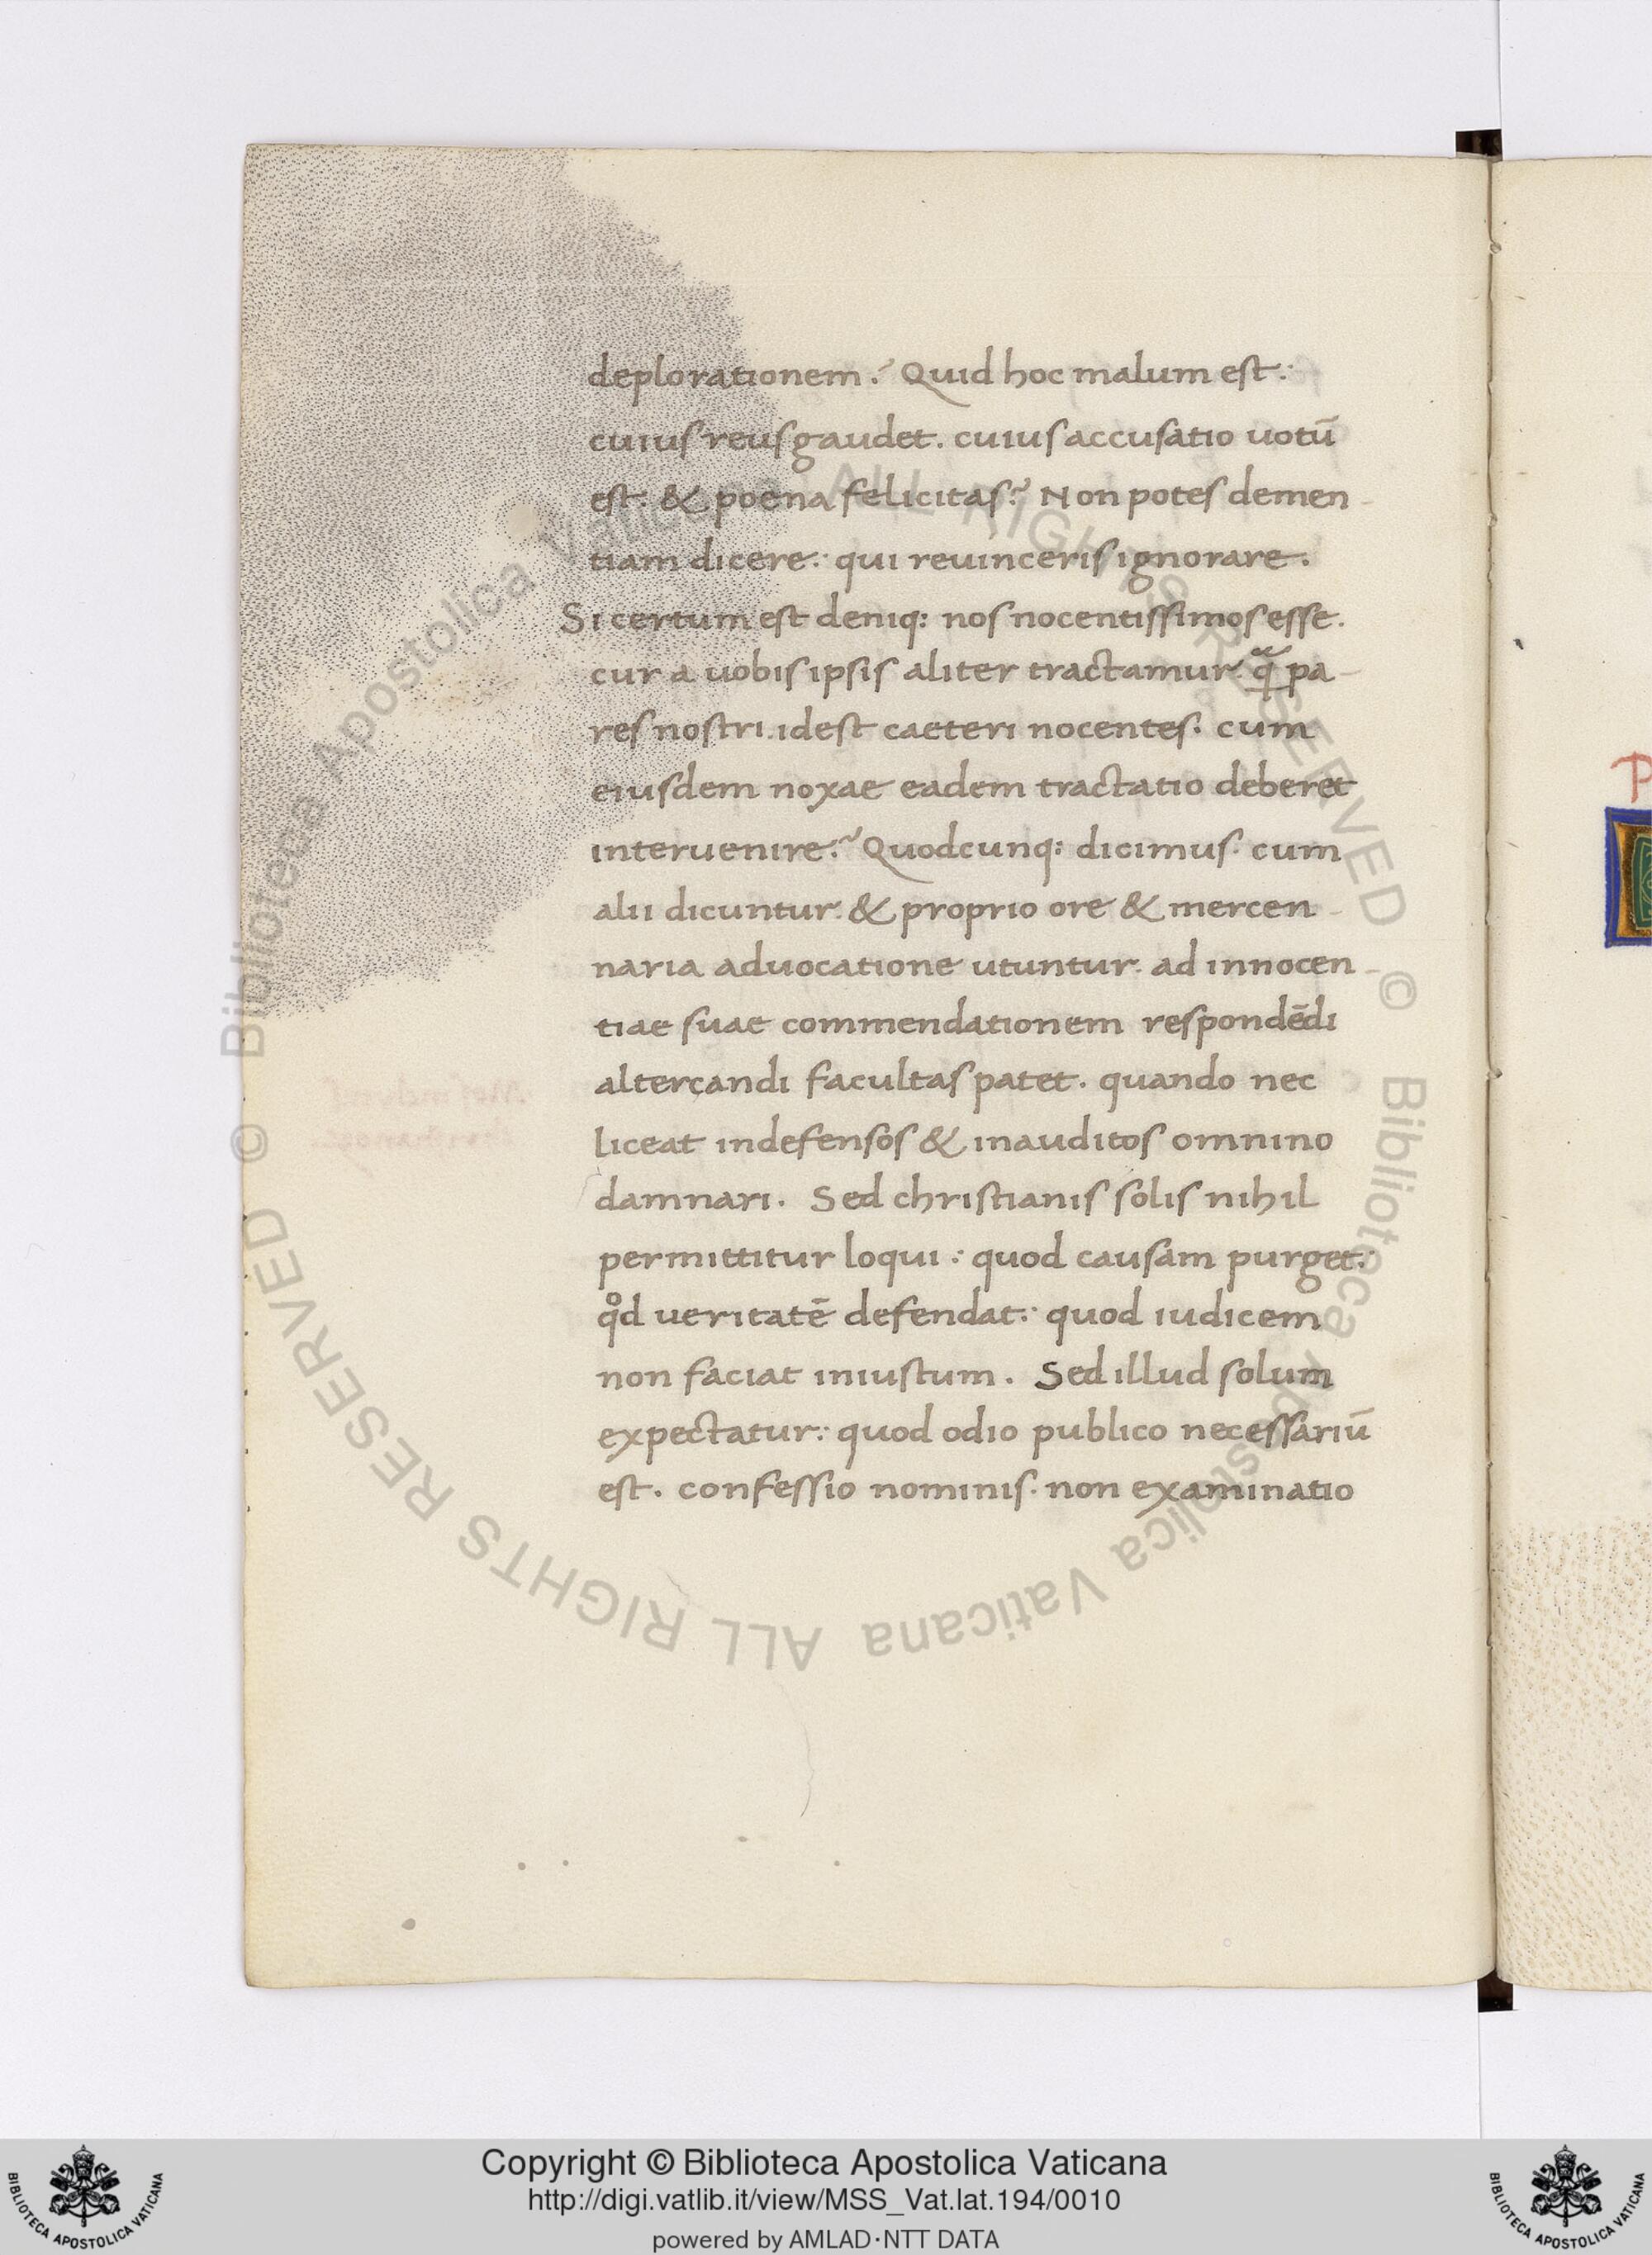 deplorationem? Quid hoc malum est:
cuius reus gaudet. cuius accusatio uotū
est: & poena felicitas? Non potes demen-
tiam dicere: qui reuinceris ignorare.
Si certum est deniq: nos nocentissimos esse.
cur a uobis ipsis aliter tractamur. qᷓ pa-
res nostri. idest caeteri nocentes. cum
eiusdem noxae eadem tractatio deberet
interuenire? Quodcunq: dicimus. cum
alii dicuntur. & proprio ore & mercen-
naria aduocatione utuntur. ad innocen-
tiae suae commendationem respondēdi
altercandi facultas patet. quando nec
liceat indefensos & inauditos omnino
damnari. Sed christianis solis nihil
permittitur loqui: quod causam purget:
qͦd ueritatē defendat: quod iudicem
non faciat iniustum. Sed illud solum
expectatur: quod odio publico necessariū
est. confessio nominis. non examinatio
P
© Biblioteca Apostolica Vaticana ALL RIGHTS RESERVED © Biblioteca Apostolica Vaticana ALL RIGHTS RESERVED
Copyright © Biblioteca Apostolica Vaticana
http://digi.vatlib.it/view/MSS_Vat.lat.194/0010
powered by AMLAD·NTT DATA
BIBLIOTECA APOSTOLICA VATICANA
BIBLIOTECA APOSTOLICA VATICANA